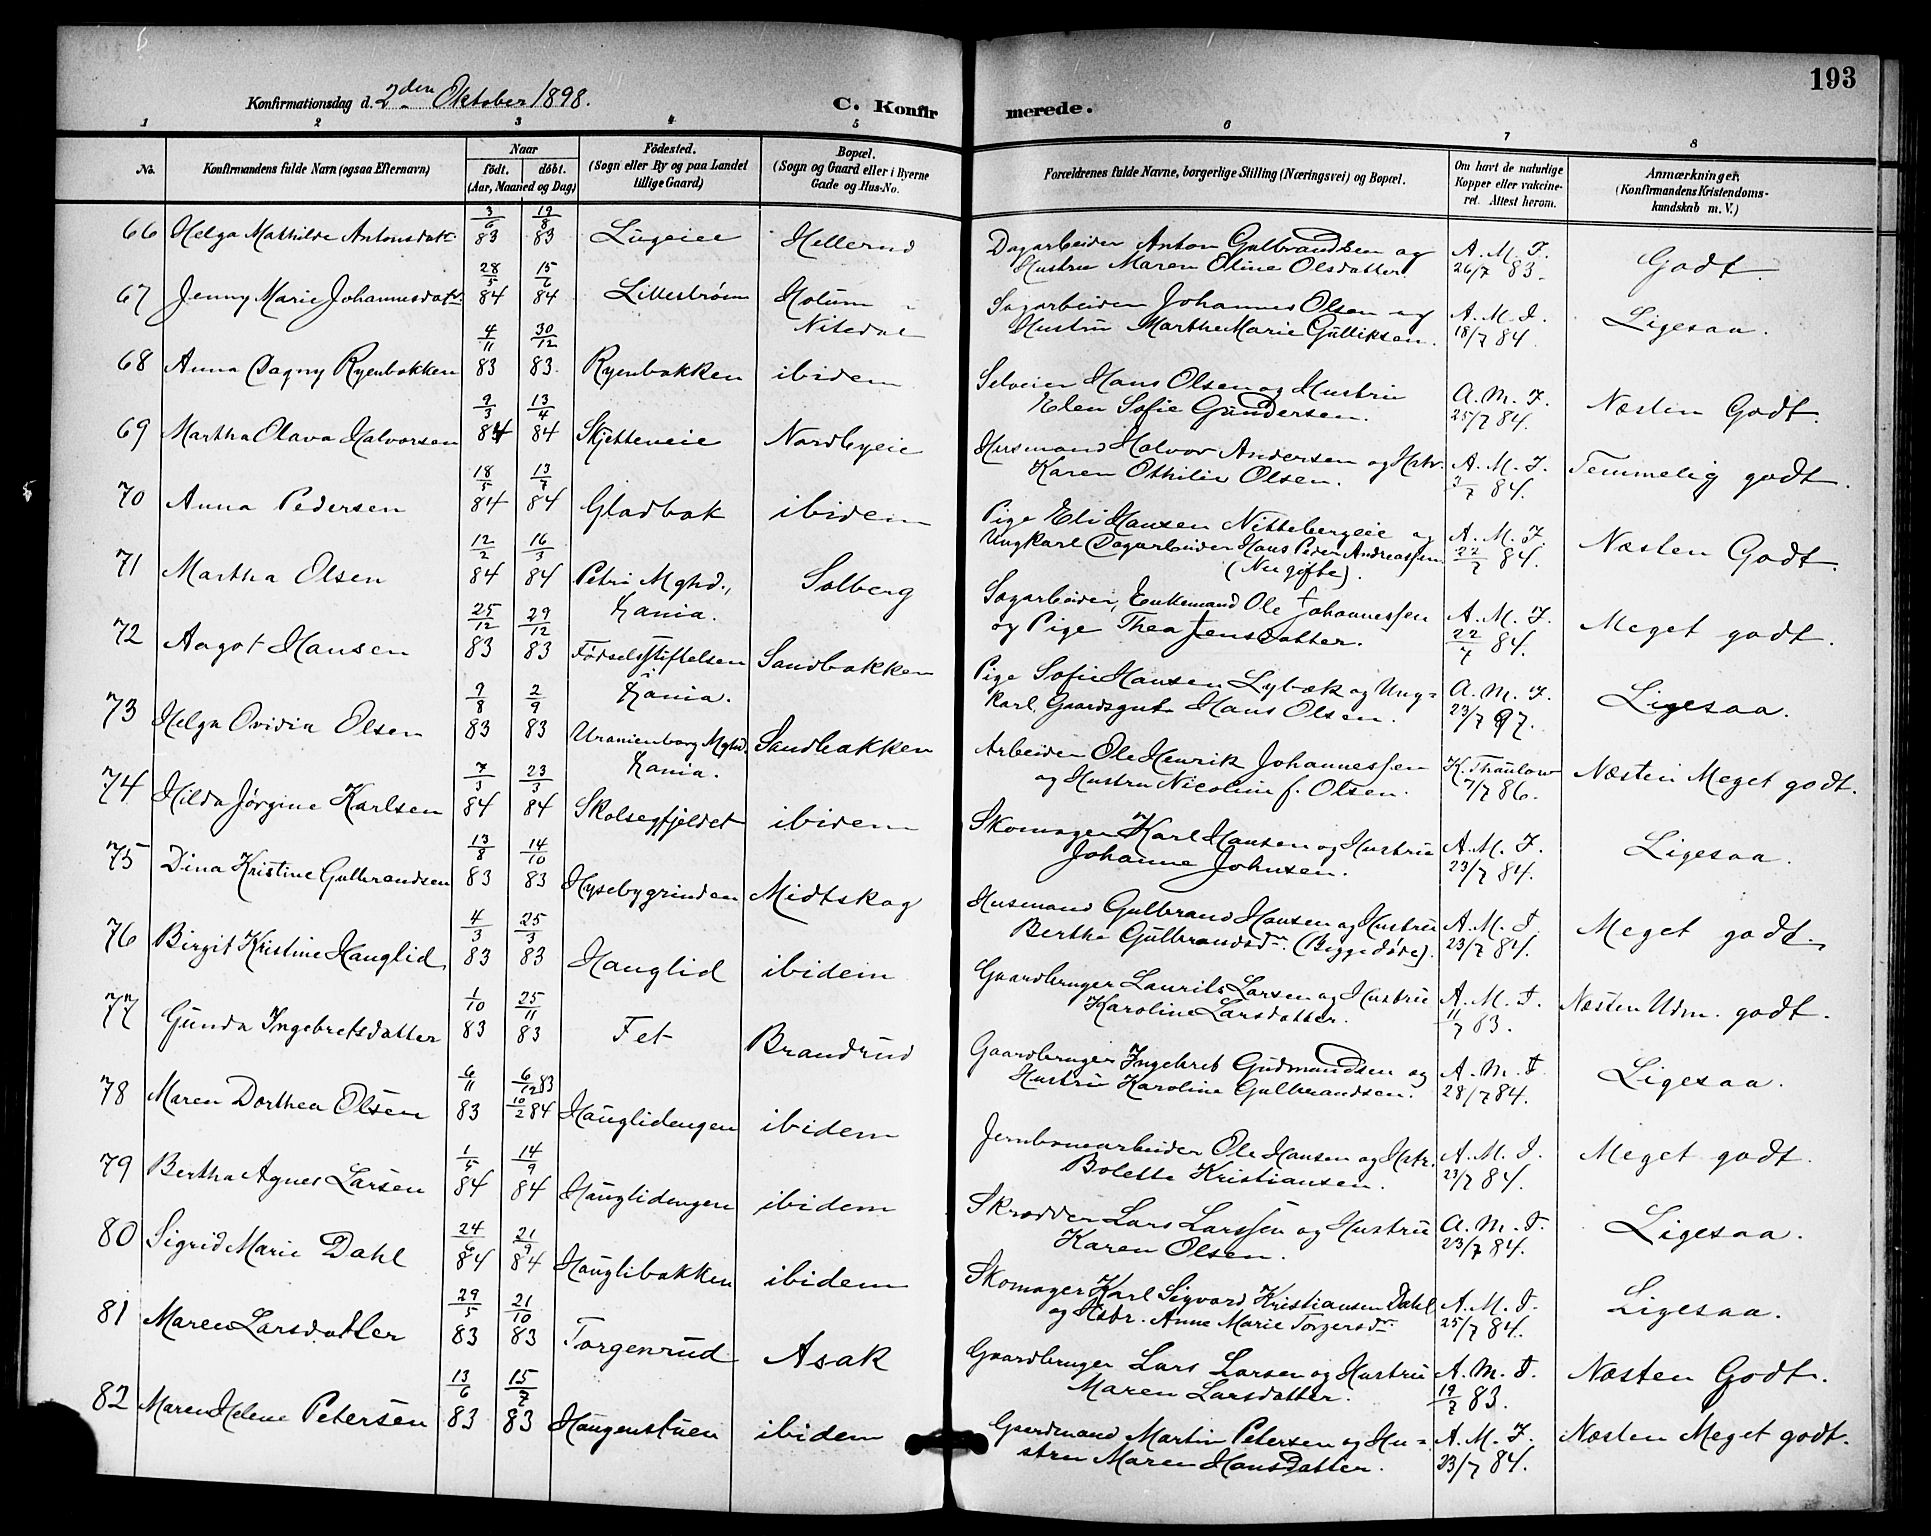 193
Konfirmationsdag d. 2den Oktober 1898.
C. Konfirmerede.
1 2 3 4 5 6 7 8
No. Konfirmandens fulde Navn (ogsaa Efternavn) Naar født. døbt. (Aar, Maaned og Dag) Födested. (Sogn eller By og paa Landet tillige Gaard) Bopæl. (Sogn og Gaard eller i Byerne Gade og Hus-No. Forældrenes fulde Navne, borgerlige Stilling (Næringsvei) og Bopæl. Om havt de naturlige Kopper eller vakcineret. Attest herom. Anmærkninger, (Konfirmandens Kristendomskundskab m. V.)
66 Helga Mathilde Antonsdatr 3/6 83 19/8 83 Lugeiee Hellerud Dagarbeider Anton Gulbrandsen og A. M. F. Godt.
Hustru Maren Oline Olsdatter. 26/7 83.
67 Jenny Marie Johannesdatr 28/5 84 15/6 84 Lillestrøm Holum Sagarbeider Johannes Olsen og A. M. F. Ligesaa.
Nitedal Hustru Marthe Marie Gulliksen. 18/7 84.
68 Anna Dagny Ryenbakken 4/11 83 30/12 83. Ryenbakken ibidem Selveier Hans Olsen og Hustru A. M. F. Næsten Godt.
Elen Sofie Gundersen. 25/7 84.
69 Martha Olava Halvorsen 9/3 84 13/4 84 Skjetteneie Nordbyeie Husmand Halvor Andersen og Hstr. A. M. F. Temmelig godt.
Karen Othilie Olsen. 3/7 84.
70 Anna Pedersen 18/5 84 13/7 84 Gladbak ibidem Pige Eli Hansen Nittebergeie og A. M. F. Næsten Godt.
Ungkarl Dagarbeider Hans Peder Andreassen 22/7 84.
(Nu gifte).
71 Martha Olsen 12/2 84 16/3 84 Petri Mghd., Solberg Sagarbeider, Enkemand Ole Johannessen A. M. F. Meget godt.
Kania. og Pige Thea Jensdatter. 22/7 84.
72 Aagot Hansen 25/12 83 29/12 83 Fødselsstiftelsen Sandbakken Pige Sofie Hansen Lybæk og Ung= A. M. F. Ligesaa.
Kania. Karl, Gaardsgut Hans Olsen. 23/7 97.
73 Helga Ovidia Olsen 9/8 83 2/9 83 Uranienborg Mghd. Sandbakken Arbeider Ole Henrik Johannessen K. Thaulow Næsten Meget godt.
Kania. og Hustru Nicoline f. Olsen. 7/7 86.
74 Hilda Jørgine Karlsen 7/3 84 23/3 84 Skolsegfjeldet ibidem Skomager Karl Hansen og Hustru A. M. F. Ligesaa.
Johanne Johnsen. 23/7 84.
75 Dina Kristine Gulbrandsen 13/8 83 14/10 83 Hysebygrinden Midtskog Husmand Gulbrand Hansen og Hustru A. M. F. Meget godt.
Berthe Gulbrandsdr. (Begge døde). 23/7 84.
76 Birgit Kristine Hauglid 4/3 83 25/3 83 Hauglid ibidem Gaardbruger Laurits Larsen og Hustru A. M. F. Næsten Udm. godt.
Karoline Larsdatter. 11/7 83.
77 Gunda Ingebretsdatter 1/10 83 25/11 83 Fet Brandrud Gaardbruger Ingebret Gudmundsen og A. M. F. Ligesaa.
Hustru Karoline Gulbrandsen. 28/7 84.
78 Maren Dorthea Olsen 6/11 83 6/12 83 10/2 84 Hauglidengen ibidem Jernbanearbeider Ole Hansen og Hstr. A. M. F. Meget godt.
Bolette Kristiansen. 23/7 84.
79 Bertha Agnes Larsen 1/5 84 14/9 84 Hauglidengen ibidem Skrædder Lars Larssen og Hustru A. M. F. Ligesaa.
Karen Olsen. 23/7 84.
80 Sigrid Marie Dahl 24/6 84 21/9 84 Hauglibakken ibidem Skomager Karl Sigvard Kristiansen Dahl A. M. F. Ligesaa.
og Hstr. Anne Marie Torgersdr. 25/7 84.
81 Maren Larsdatter 29/5 83 21/10 83 Torgenrud Asak Gaardbruger Lars Larsen og Hustru A. M. F. Næsten Godt.
Maren Larsdatter. 19/7 83.
82 Maren Helene Petersen 13/6 83 15/7 83 Haugenstuen ibidem Gaardmand Martin Petersen og Hu= A. M. F. Næsten Meget godt.
stru Maren Hansdatter. 23/7 84.